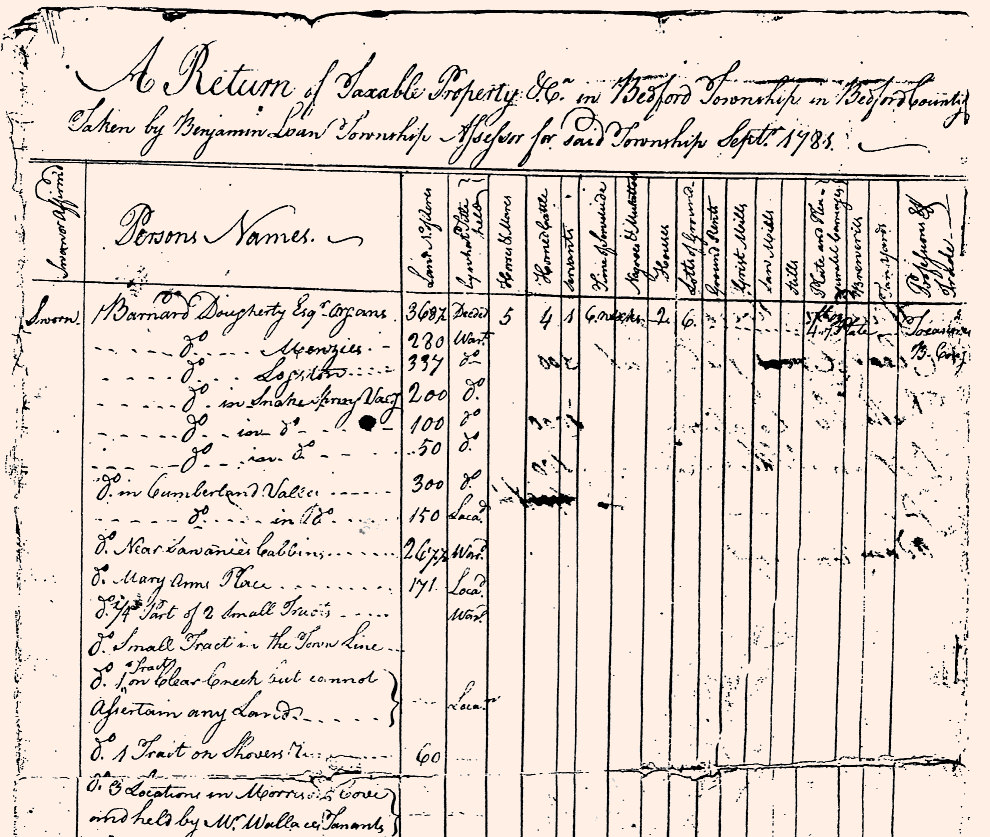 A Return of Taxable Property &Ca. in Bedford Township in Bedford County
Taken by Benjamin Loan Township Assessor for said Township Septr. 1781.
Sworn or Affirmd
Persons Names.
Land No. of Acres
by what Title held
Horses & Mares
Horned Cattle
Servants
Time of Servitude
Negroes & Mulattoes
Houses
Lotts of Ground
Ground Rents
Grist Mills
Saw Mills
Stills
Plate and
Tan Yards
Professions &
Trades
Sworn. Barnard Dougherty Esqr. Organs 3687 Deeded 5 4 1 6 2 6
do Menzies 280 Wart.
do 337 do
do in Snake Spring Vally 200 do.
do in do 100 do
do in do 50 do
do in Cumberland Valley 300 do
do in Do 150 Loca.
do. Near Cabbins Wart.
do. Mary Anns Place 171 Loca.
do. 1/4 Part of 2 Small Tracts Wart.
do Small Tract in the Town Line
do. 1 Tract on Clear Creek but cannot
Assertain any Land. Loca.
do. 1 Tract on Shovers 60
do. 3 Locations in Morrisons Cove
and held by Mr. Wallaces Tenants